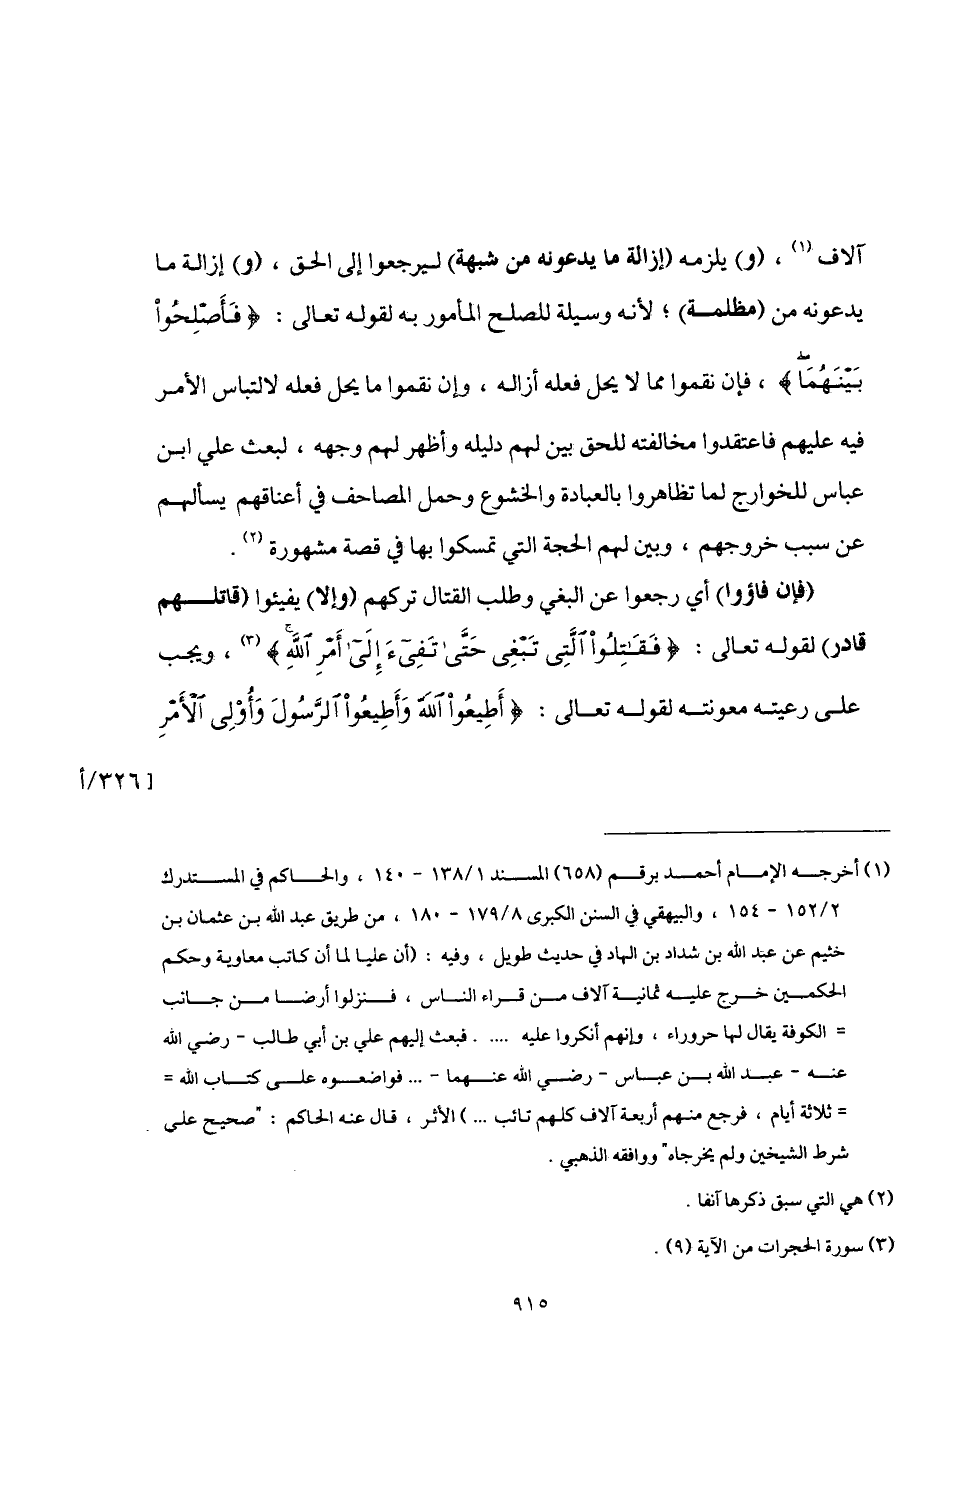 آلاف (١) ، (و) يلزمه (إزالة ما يدعونه من شبهة) ليرجعوا إلى الحق ، (و) إزالة ما
يدعونه من (مظلمة) ؛ لأنه وسيلة للصلح المأمور به لقوله تعالى : ﴿ فَأَصْلِحُواْ
بَيْنَهُمَا ۖ﴾ ، فإن نقموا مما لا يحل فعله أزاله ، وإن نقموا ما يحل فعله لالتباس الأمر
فيه عليهم فاعتقدوا مخالفته للحق بين لهم دليله وأظهر لهم وجهه ، لبعث علي ابن
عباس للخوارج لما تظاهروا بالعبادة والخشوع وحمل المصاحف في أعناقهم يسألهم
عن سبب خروجهم ، وبين لهم الحجة التي تمسكوا بها في قصة مشهورة (٢) .
(فإن فاؤوا) أي رجعوا عن البغي وطلب القتال تركهم (وإلا) يفيئوا (قاتلهم
قادر) لقوله تعالى : ﴿ فَقَٰتِلُواْ ٱلَّتِى تَبْغِى حَتَّىٰ تَفِىٓءَ إِلَىٰٓ أَمْرِ ٱللَّهِ ۚ﴾ (٣) ، ويجب
على رعيته معونته لقوله تعالى : ﴿ أَطِيعُواْ ٱللَّهَ وَأَطِيعُواْ ٱلرَّسُولَ وَأُوْلِى ٱلْأَمْرِ
[ ٣٢٦/أ
(١) أخرجه الإمام أحمد برقم (٦٥٨) المسند ١٣٨/١ – ١٤٠ ، والحاكم في المستدرك
١٥٢/٢ – ١٥٤ ، والبيهقي في السنن الكبرى ١٧٩/٨ – ١٨٠ ، من طريق عبد الله بن عثمان بن
خثيم عن عبد الله بن شداد بن الهاد في حديث طويل ، وفيه : (أن عليا لما أن كاتب معاوية وحكم
الحكمين خرج عليه ثمانية آلاف من قراء الناس ، فنزلوا أرضا من جانب
= الكوفة يقال لها حروراء ، وإنهم أنكروا عليه .... . فبعث إليهم علي بن أبي طالب – رضي الله
عنه – عبد الله بن عباس – رضي الله عنهما – ... فواضعوه على كتاب الله =
= ثلاثة أيام ، فرجع منهم أربعة آلاف كلهم تائب ... ) الأثر ، قال عنه الحاكم : "صحيح على
شرط الشيخين ولم يخرجاه" ووافقه الذهبي .
(٢) هي التي سبق ذكرها آنفا .
(٣) سورة الحجرات من الآية (٩) .
٩١٥